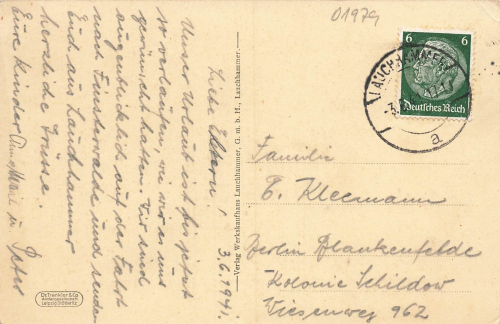 01979
Liebe Eltern!
3.6.1941.
Unser Urlaub ist für jetzt
so verlaufen, wie wir es uns
gewünscht hatten. Wir sind
augenblicklich auf der Fahrt
nach Finsterwalde und senden
Euch aus Lauchhammer
herzliche Grüsse.
Eure Kinder Annemarie u. Peter
Verlag Werkskaufhaus Lauchhammer, G. m. b. H., Lauchhammer.
Dr. Trenkler & Co
Aktiengesellschaft
Leipzig-Stötteritz
6 6
Deutsches Reich
LAUCHHAMMER
a
Familie
E. Kleemann
Berlin Blankenfelde
Kolonie Schildow
Wiesenweg 962